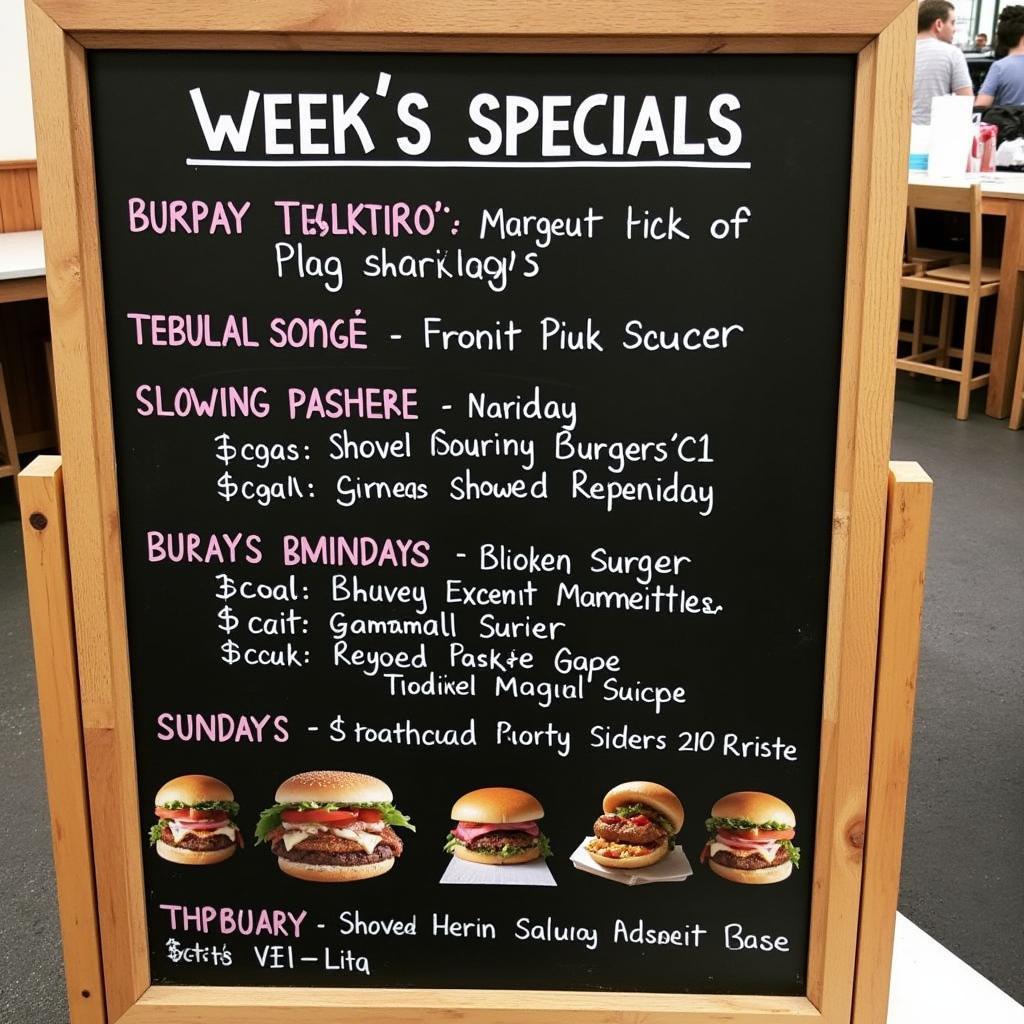 WEEK'S SPECIALS
BURPAY : Margeut of
Plag
TEBULAL SONGÉ - Fronit Piuk Scucer
SLOWING PASHERE - Nariday
$cgas: Shovel Bouriny Burgers'C1
$cgall: Girneas Showed Repeniday
BURAYS BMINDAYS - Blioken Surger
$coal: Bhuvey Excenit
$cait: Gamamall Surier
$ccuk: Reyoed Gape
Tiodikel Magial Suicpe
SUNDAYS - $ Siders 210 Rriste
THPBUARY - Shoved Herin Saluiay Adspeit Base
- Lita